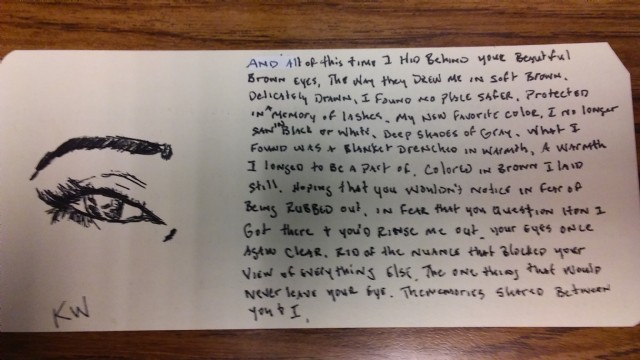 AND All of this time I HID BEHIND your BEAUTIFUL
BROWN EYES, THE WAY they DREW ME IN SOFT BROWN.
DELICATELY DRAWN, I FOUND NO PLACE SAFER. PROTECTED
IN A MEMORY OF LASHES. MY NEW FAVORITE COLOR. I NO LONGER
SAW IN BLACK OR WHITE, DEEP SHADES OF GRAY. WHAT I
FOUND WAS A BLANKET DRENCHED IN WARMTH. A WARMTH
I LONGED TO BE A PART OF. COLORED IN BROWN I LAID
STILL. HOPING THAT YOU WOULDN'T NOTICE IN FEAR OF
BEING RUBBED OUT. IN FEAR THAT YOU QUESTION HOW I
GOT THERE & YOU'D RINSE ME OUT. YOUR EYES ONCE
AGAIN CLEAR. RID OF THE NUANCE THAT BLOCKED YOUR
VIEW OF EVERYTHING ELSE. THE ONE THING THAT WOULD
NEVER LEAVE YOUR EYE. THE MEMORIES SHARED BETWEEN
YOU & I.
KW